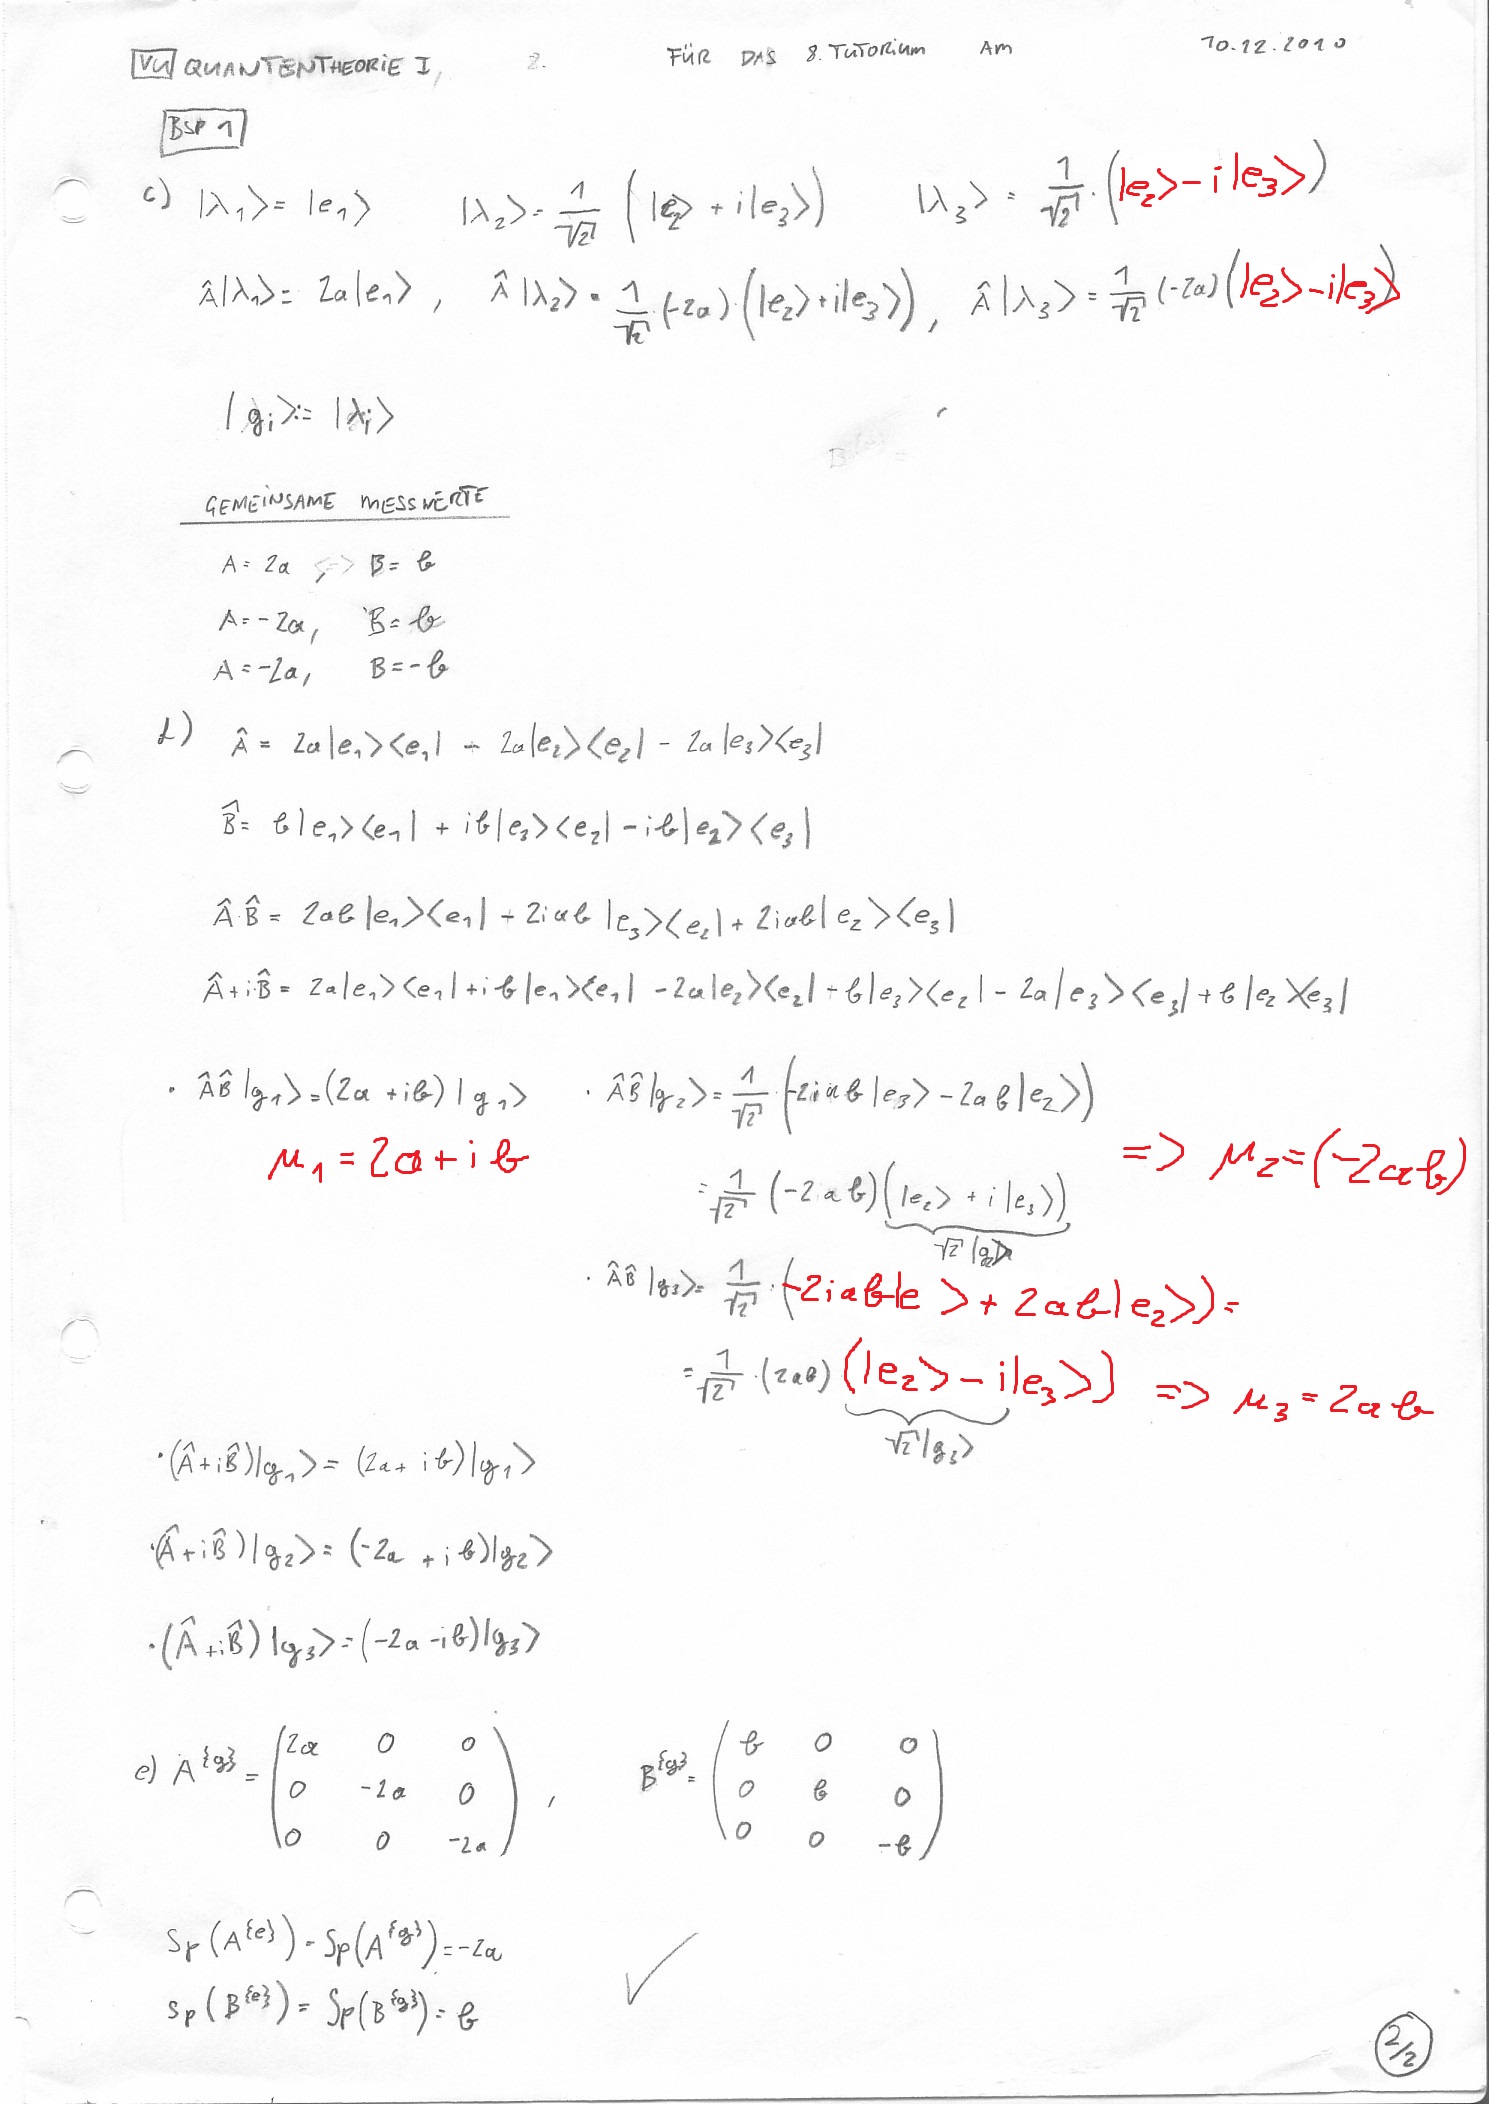 VU QUANTENTHEORIE I, 2. FÜR DAS 8. TUTORIUM AM 10.12.2010
BSP 1
c) |λ₁> = |e₁> |λ₂> = 1/√2 (|e₂> + i|e₃>) |λ₃> = 1/√2 · (|e₂> - i|e₃>)
Â|λ₁> = 2a|e₁> , Â|λ₂> = 1/√2 · (-2a) · (|e₂> + i|e₃>) , Â|λ₃> = 1/√2 (-2a) (|e₂> - i|e₃>)
|gᵢ> := |λᵢ>
GEMEINSAME MESSWERTE
A = 2a , B = b
A = -2a, B = b
A = -2a, B = -b
d) Â = 2a|e₁><e₁| - 2a|e₂><e₂| - 2a|e₃><e₃|
B̂ = b|e₁><e₁| + ib|e₃><e₂| - ib|e₂><e₃|
Â·B̂ = 2ab|e₁><e₁| - 2iab|e₃><e₂| + 2iab|e₂><e₃|
Â+i·B̂ = 2a|e₁><e₁| + ib|e₁><e₁| - 2a|e₂><e₂| - b|e₃><e₂| - 2a|e₃><e₃| + b|e₂><e₃|
· ÂB̂|g₁> = (2a + ib)|g₁> · ÂB̂|g₂> = 1/√2 · (-2iab|e₃> - 2ab|e₂>)
μ₁ = 2a + ib => μ₂ = (-2ab)
= 1/√2 (-2ab)(|e₂> + i|e₃>)
√2|g₂>
· ÂB̂|g₃> = 1/√2 · (-2iab|e > + 2ab|e₂>) =
= 1/√2 · (2ab) (|e₂> - i|e₃>) => μ₃ = 2ab
√2|g₃>
· (Â+iB̂)|g₁> = (2a + ib)|g₁>
· (Â+iB̂)|g₂> = (-2a + ib)|g₂>
· (Â+iB̂)|g₃> = (-2a - ib)|g₃>
e) A^{g} = (2a 0 0 , B^{g} = (b 0 0
0 -2a 0 0 b 0
0 0 -2a) 0 0 -b)
Sp(A^{e}) = Sp(A^{g}) = -2a
Sp(B^{e}) = Sp(B^{g}) = b ✓
2/2